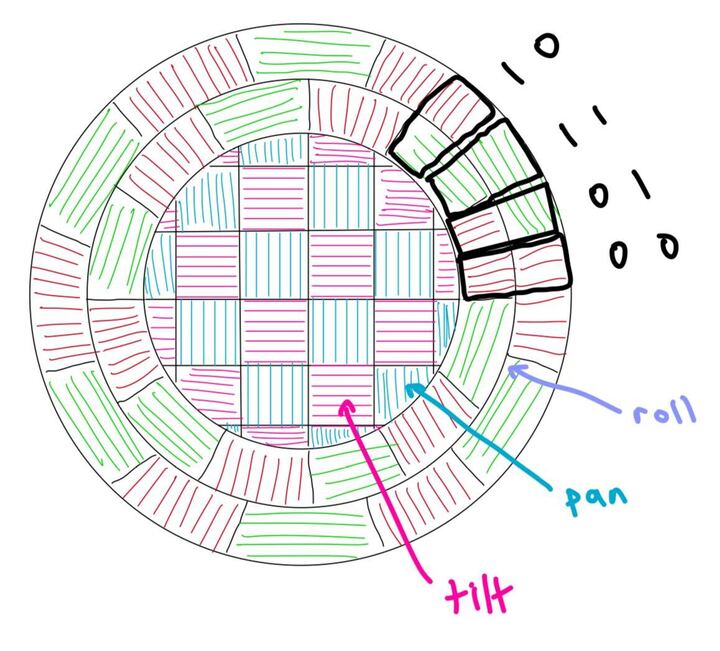 1 0
1 1
0 1
0 0
roll
pan
tilt